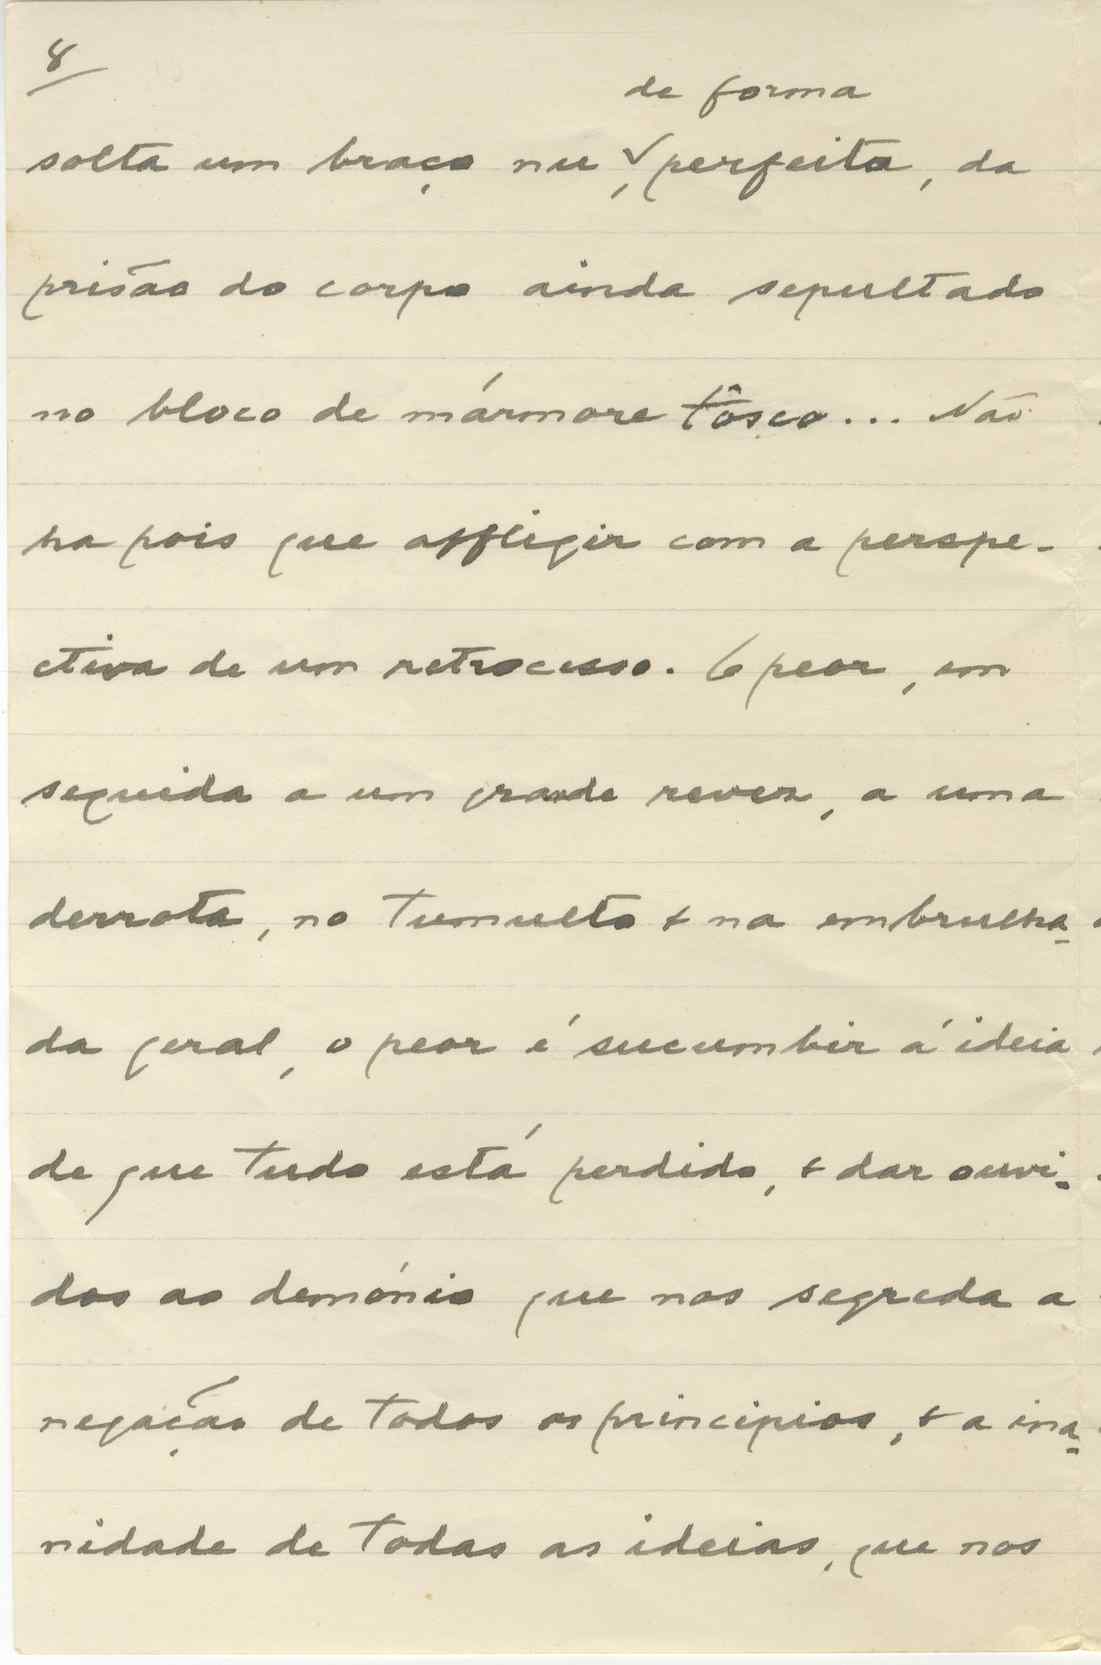 8
de forma
solta um braço nu, perfeita, da
prisão do corpo ainda sepultado
no bloco de mármore tôsco... Não
ha pois que affligir com a perspe-
ctiva de um retrocesso. O peor, em
seguida a um grande revez, a uma
derrota, no tumulto & na embrulha-
da geral, o peor é sucumbir á ideia
de que tudo está perdido, & dar ouvi-
dos ao demónio que nos segreda a
negação de todos os principios, & a ina-
nidade de todas as ideias, que nos